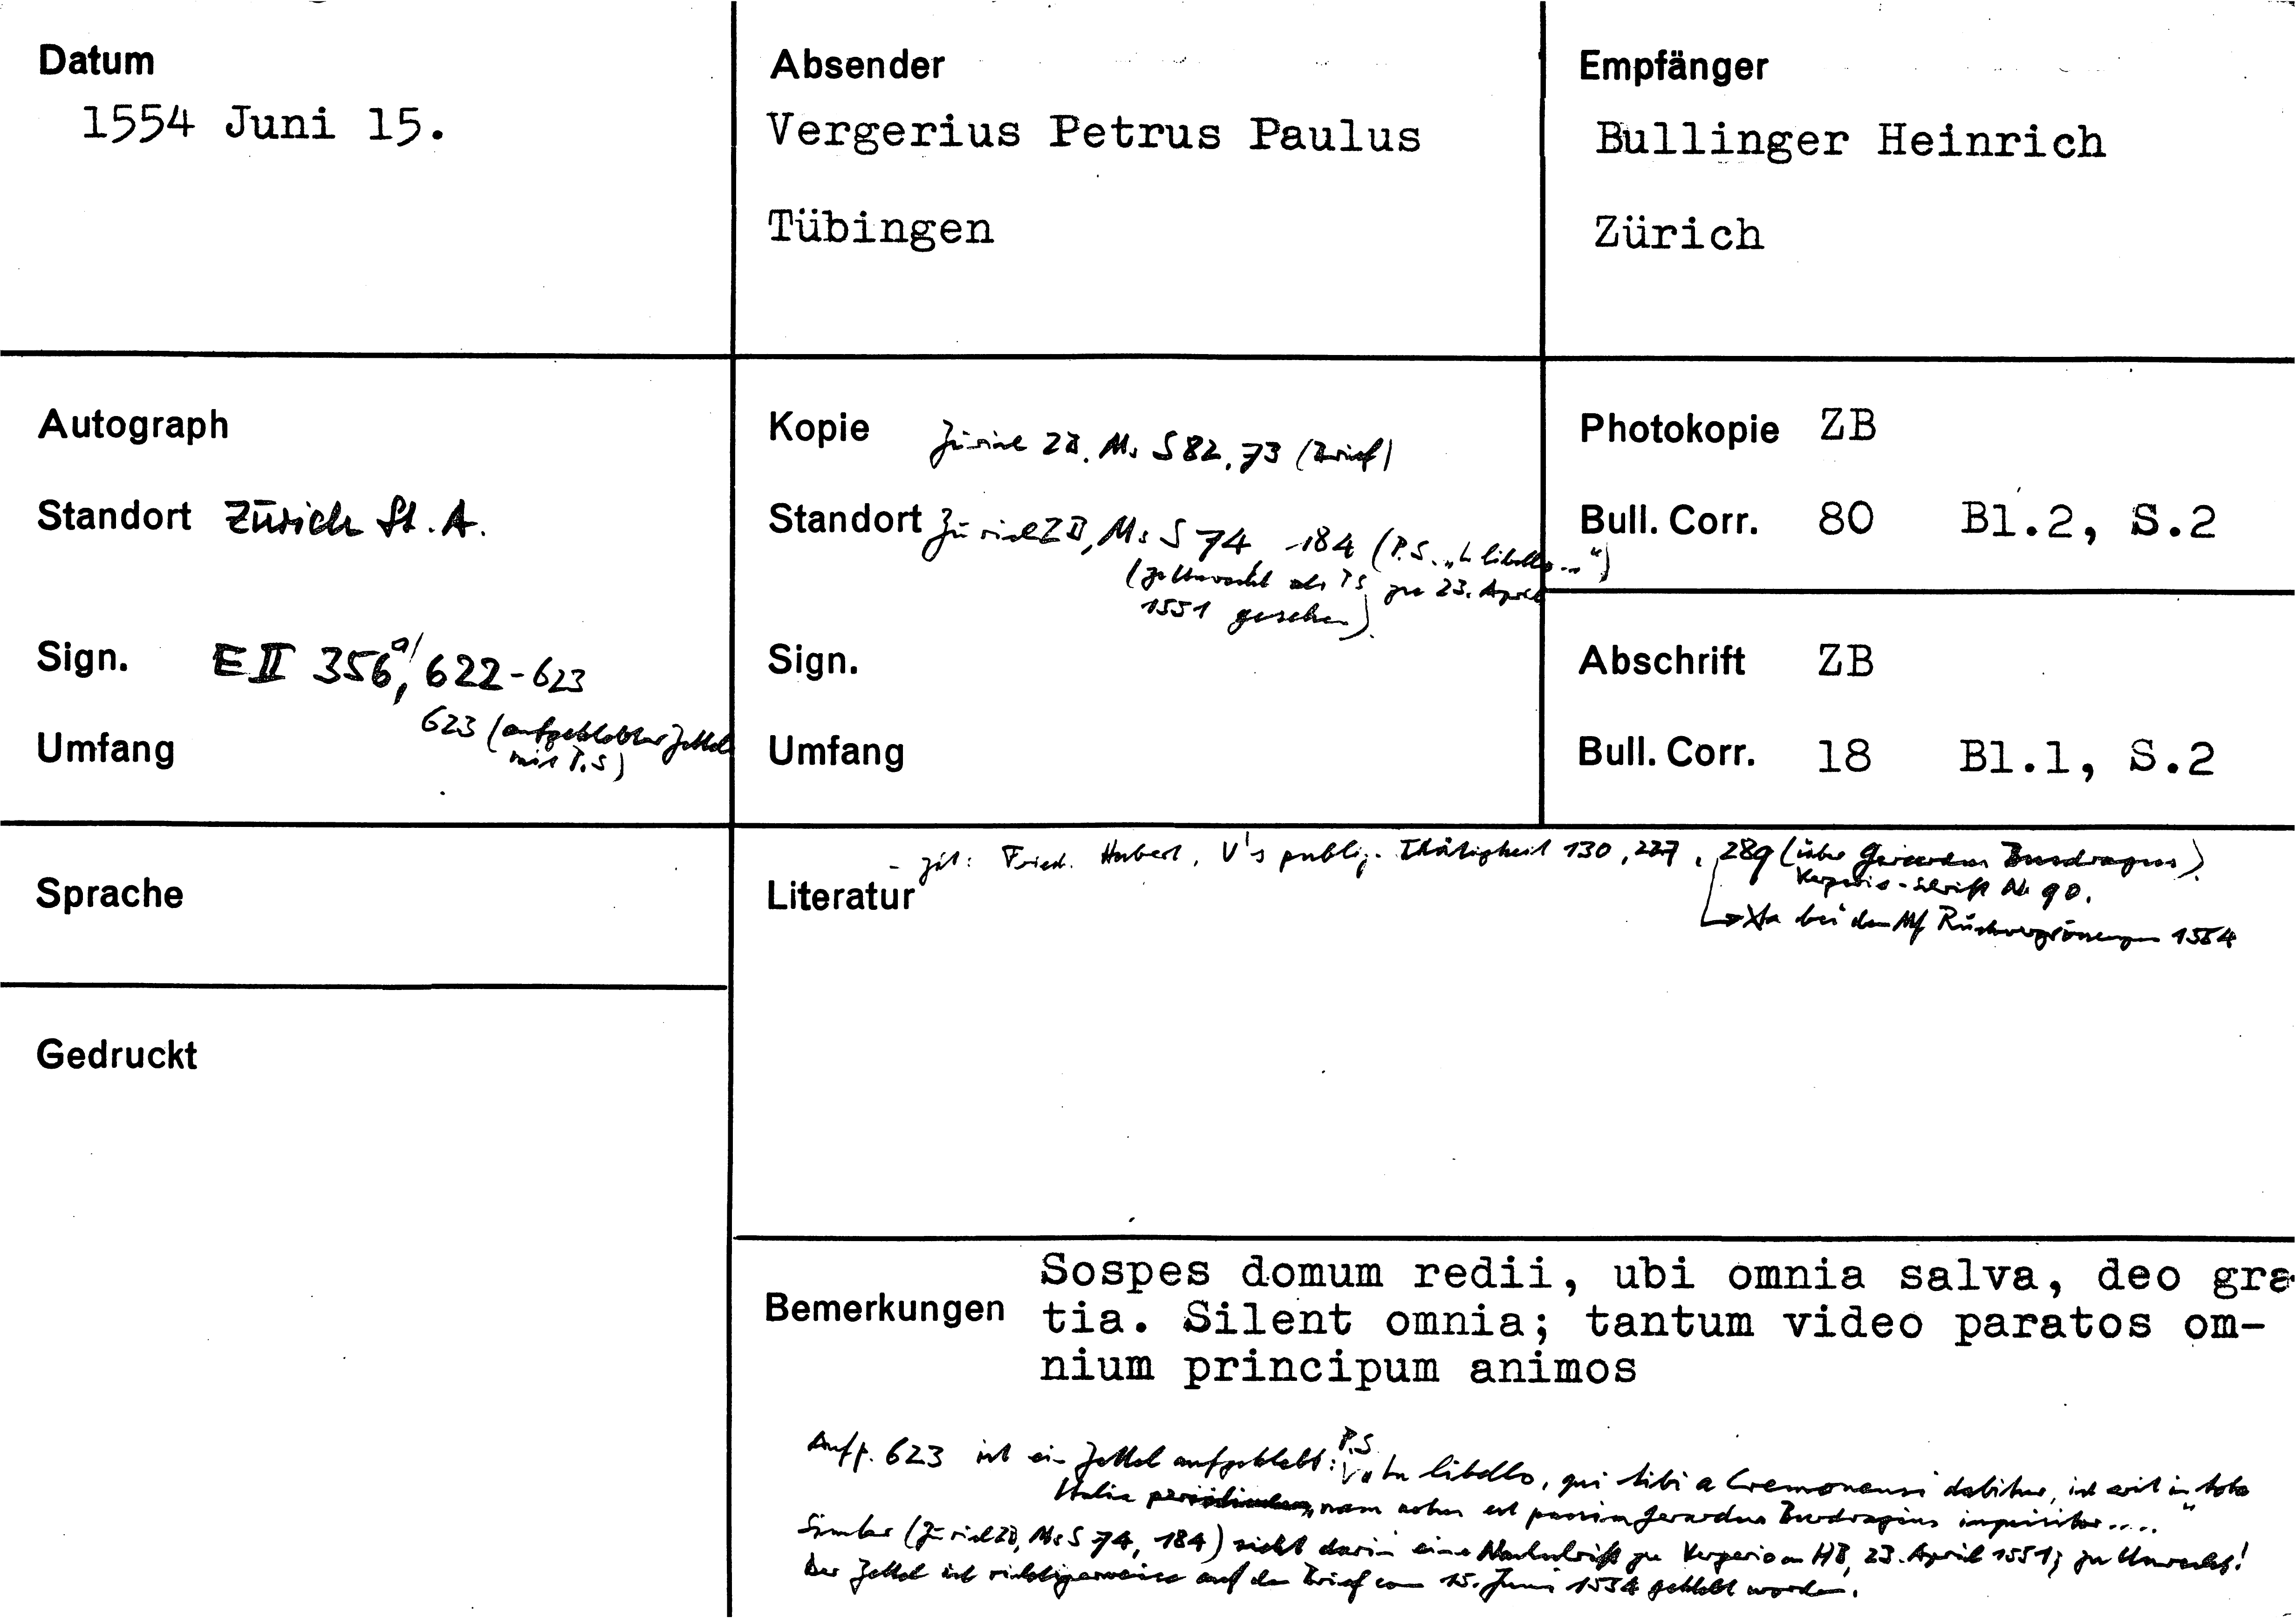 Datum
1554 Juni 15.
Absender
Vergerius Petrus Paulus
Tübingen
Empfänger
Bullinger Heinrich
Zürich
Autograph
Standort Zürich St. A.
Sign. E II 356a, 622-623
623 (aufgeklebter Zettel
mit P.S)
Umfang
Kopie Zürich ZB, Ms S 82, 73 (Brief)
Standort Zürich ZB, Ms S 74, 184 (P.S. „In libello ...")
(zu Unrecht als PS zu 23. April
1551 gesehen).
Sign.
Umfang
Photokopie ZB
Bull. Corr. 80 Bl.2, S.2
Abschrift ZB
Bull. Corr. 18 Bl.1, S.2
Sprache
Gedruckt
Literatur
- zit: Fried. Hubert, V's publiz. Thätigkeit 130, 227, 289 (über Gerardus Busdragus)
Vergerio-Schrift Nr 90.
bei den Mf Rückvergrösserungen 1554
Bemerkungen
Sospes domum redii, ubi omnia salva, deo gra
tia. Silent omnia; tantum video paratos om-
nium principum animos
Auf p. 623 ist ein Zettel aufgeklebt: P.S. „In libello, qui tibi a Cremonensi dabitur, id erit in tota
Italia nam notus est passim Gerardus Busdragius inquisitor...."
Simler (Zürich ZB, Ms S 74, 184) sieht darin eine Nachschrift zu Vergerio an HB, 23. April 1551; zu Unrecht!
Der Zettel ist richtigerweise auf den Brief vom 15. Juni 1554 geklebt worden.